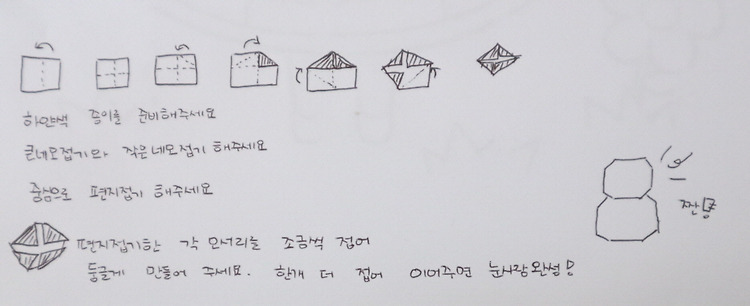 하얀색 종이를 준비해주세요
큰네모접기와 작은네모접기 해주세요
중심으로 편지접기 해주세요
편지접기한 각 모서리를 조금씩 접어
둥글게 만들어 주세요. 한개 더 접어 이어주면 눈사람완성!
짠!